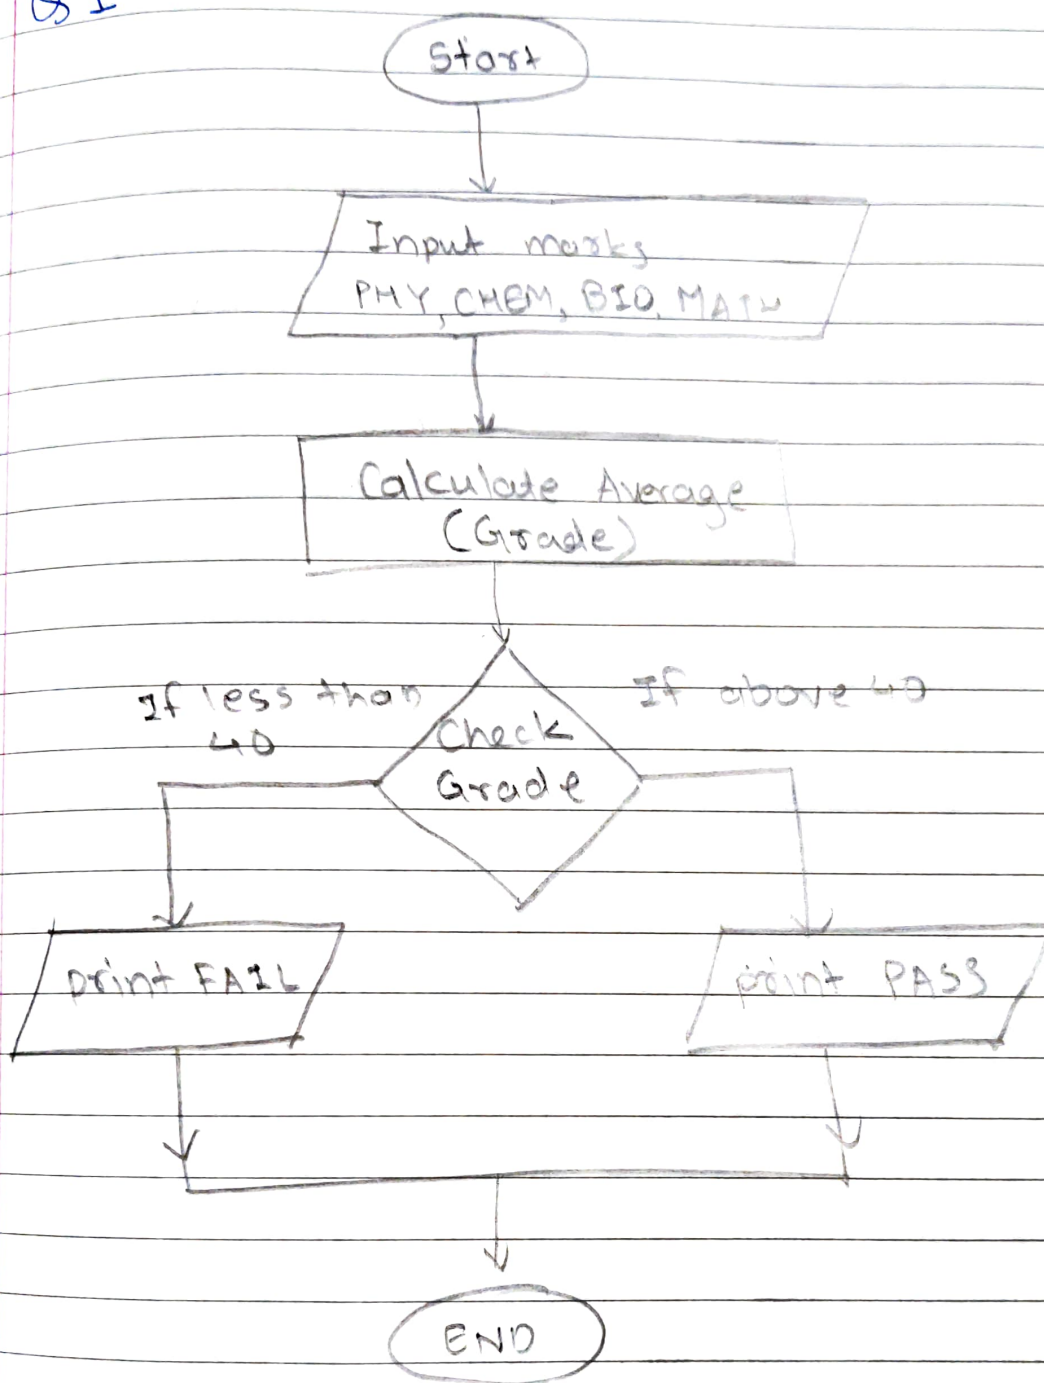 Q 1
Start
Input marks
PHY, CHEM, BIO, MATH
Calculate Average
(Grade)
If less than
40
If above 40
Check
Grade
print FAIL
print PASS
END